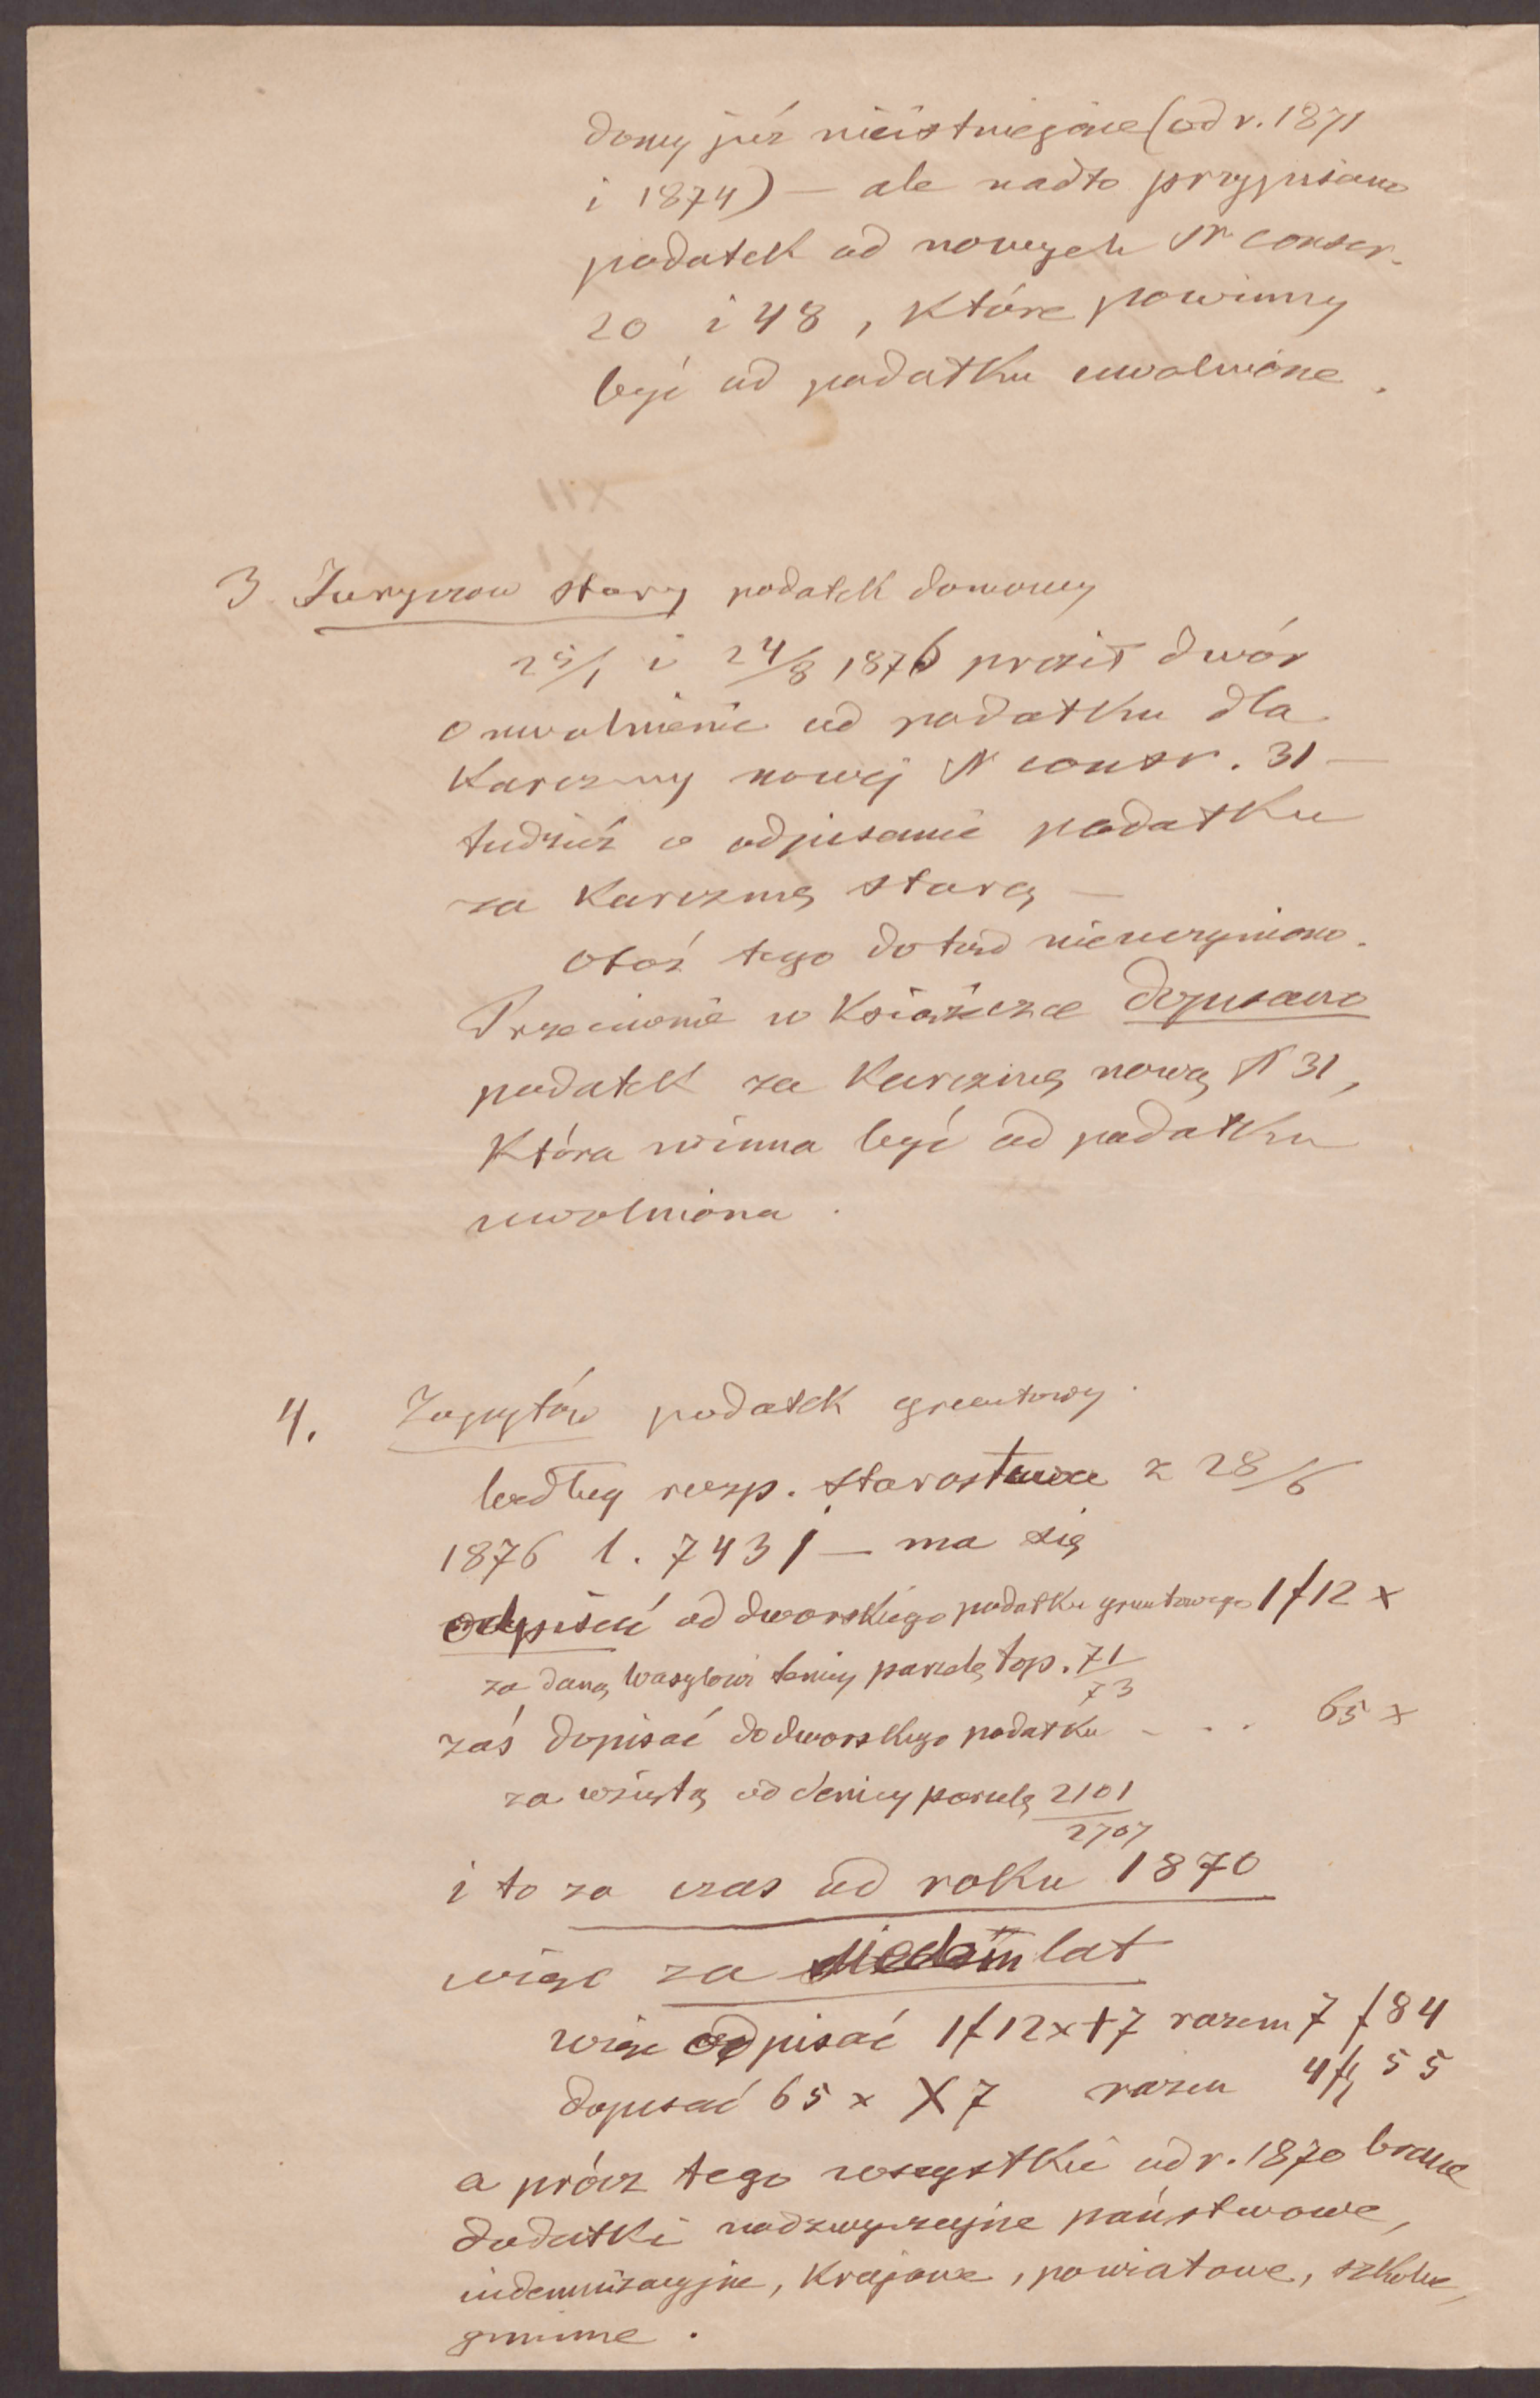 domy już nieistniejące (od r. 1871
i 1874) — ale nadto przypisano
podatek od nowych N conscr.
20 i 48, które powinny
być od podatku uwolnione.
3. Juryszów stary podatek domowy
25/1 i 24/8 1876 prosił dwór
o uwolnienie od podatku dla
karczmy nowej N conscr. 31 —
tudzież o odpisanie podatku
za karczmę starą —
Otóż tego dotąd nieuczyniono.
Przeciwnie w książeczce dopisano
podatek za karczmę nową N 31,
która winna być od podatku
uwolniona.
4. Zapytów podatek gruntowy.
Według rozp. starostwa z 28/6
1876 l. 7431 — ma się
odpisać od dworskiego podatku gruntowego 1 f 12 x
za daną Wasylowi parcelę top. 71/73
zaś dopisać do dworskiego podatku - . . . 65 x
za wziętą od parcelę 2101/2707
i to za czas od roku 1870
więc za siedem lat
więc odpisać 1 f 12 x + 7 razem 7 f 84
dopisać 65 x X 7 razem 4 f 55
a prócz tego wszystkie od r. 1870 brane
dodatki nadzwyczajne państwowe,
indemnizacyjne, krajowe, powiatowe, szkolne,
gminne.